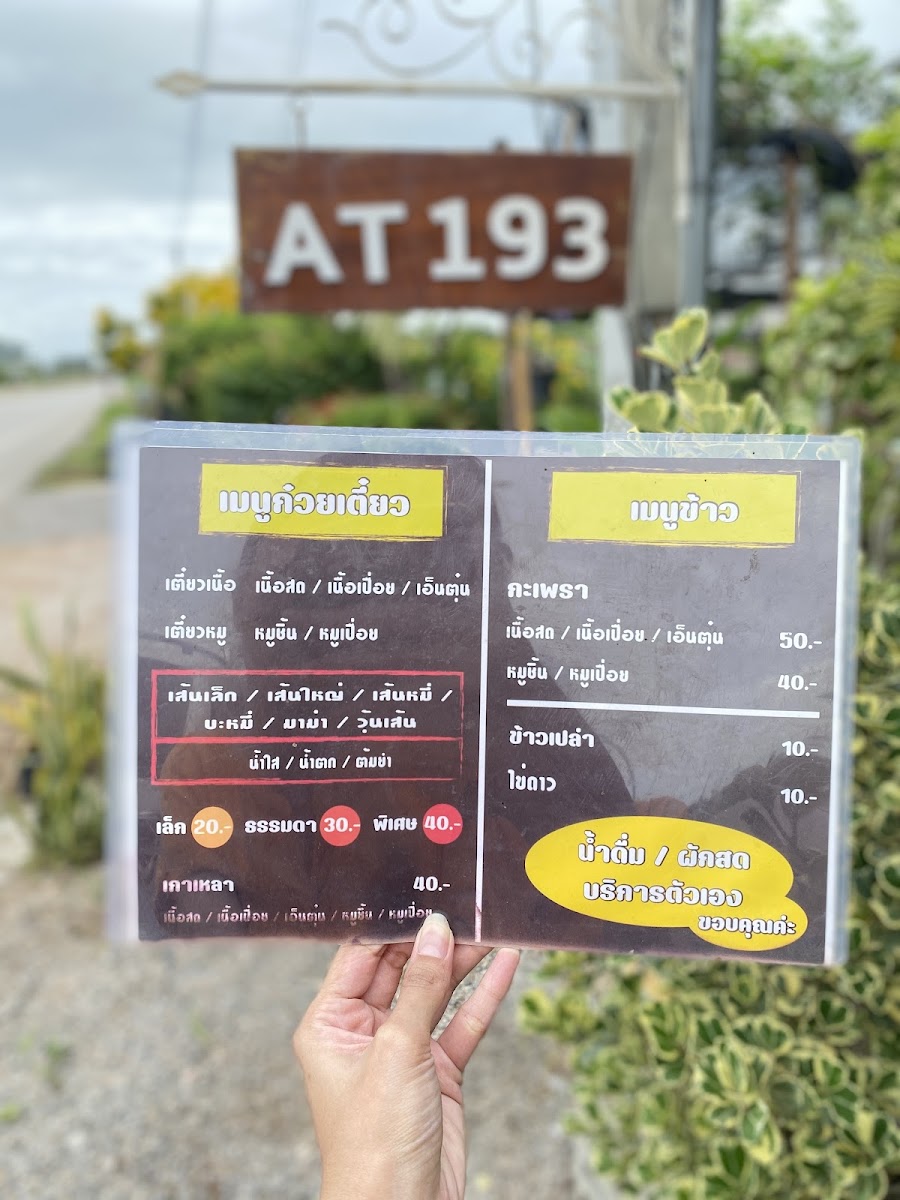 AT 193
เมนูก๋วยเตี๋ยว
เตี๋ยวเนื้อ เนื้อสด / เนื้อเปื่อย / เอ็นตุ๋น
เตี๋ยวหมู หมูชิ้น / หมูเปื่อย
เส้นเล็ก / เส้นใหญ่ / เส้นหมี่ /
บะหมี่ / มาม่า / วุ้นเส้น
น้ำใส / น้ำตก / ต้มยำ
เล็ก 20.- ธรรมดา 30.- พิเศษ 40.-
เกาเหลา 40.-
เนื้อสด / เนื้อเปื่อย / เอ็นตุ๋น / หมูชิ้น / หมูเปื่อย
เมนูข้าว
กะเพรา
เนื้อสด / เนื้อเปื่อย / เอ็นตุ๋น 50.-
หมูชิ้น / หมูเปื่อย 40.-
ข้าวเปล่า 10.-
ไข่ดาว 10.-
น้ำดื่ม / ผักสด
บริการตัวเอง
ขอบคุณค่ะ